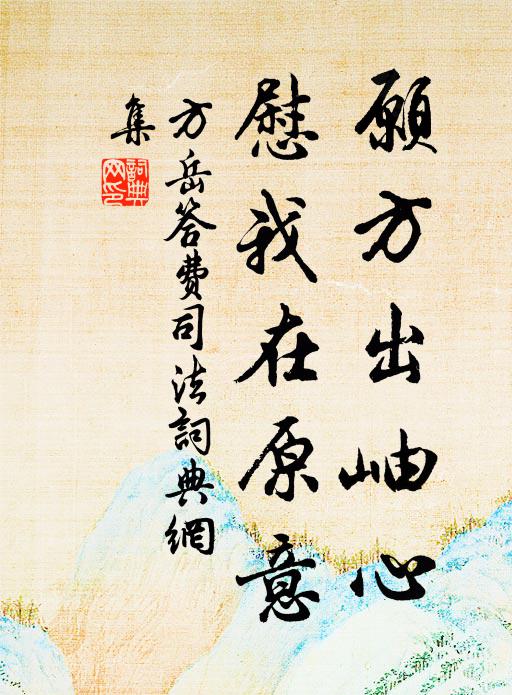 願方出岫心
慰我在原意
方岳答費司法詞典網
集
詞典網印